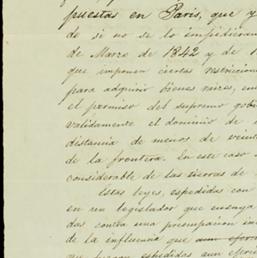 puestas en Paris, que y
de si no se lo impidieran
de Marzo de 1842 y de 1
que imponen ciertas restriccion
para adquirir bienes raices, en
el permiso del supremo gob
validamente el dominio de
distancia de menos de veint
de la frontera. En este caso
considerable de las tierras de
Estas leyes, espedidas con
en un legislador que ensaya
das contra una preempcion in
de la influencia que aun